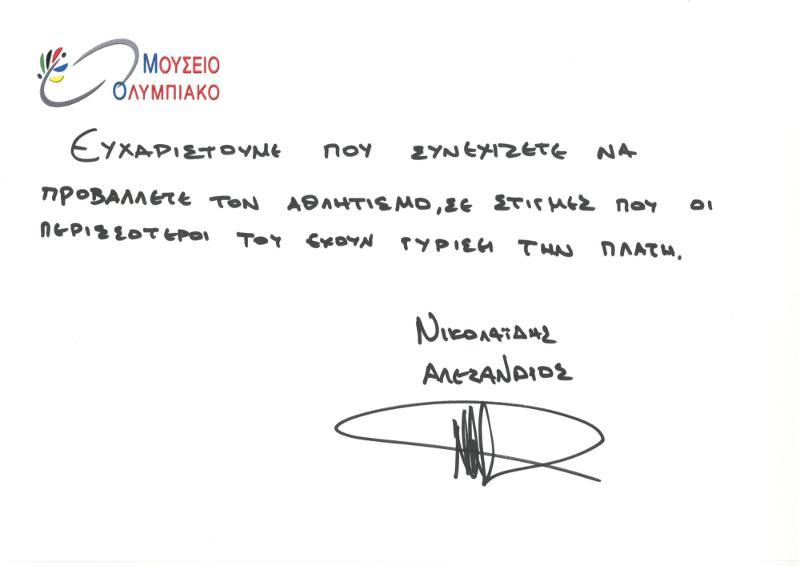 ΜΟΥΣΕΙΟ
ΟΛΥΜΠΙΑΚΟ
ΕΥΧΑΡΙΣΤΟΥΜΕ ΠΟΥ ΣΥΝΕΧΙΖΕΤΕ ΝΑ
ΠΡΟΒΑΛΛΕΤΕ ΤΟΝ ΑΘΛΗΤΙΣΜΟ, ΣΕ ΣΤΙΓΜΕΣ ΠΟΥ ΟΙ
ΠΕΡΙΣΣΟΤΕΡΟΙ ΤΟΥ ΕΧΟΥΝ ΓΥΡΙΣΕΙ ΤΗΝ ΠΛΑΤΗ.
ΝΙΚΟΛΑΪΔΗΣ
ΑΛΕΞΑΝΔΡΟΣ